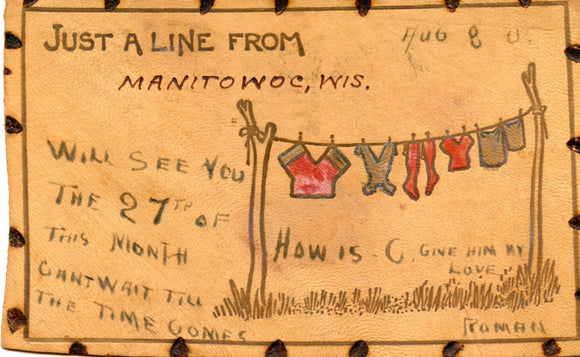 JUST A LINE FROM
AUG 8
MANITOWOC, WIS.
WILL SEE YOU
THE 27TH OF
THIS MONTH
CANT WAIT TILL
THE TIME COMES
HOW IS - C. GIVE HIM MY
LOVE
ROMAN